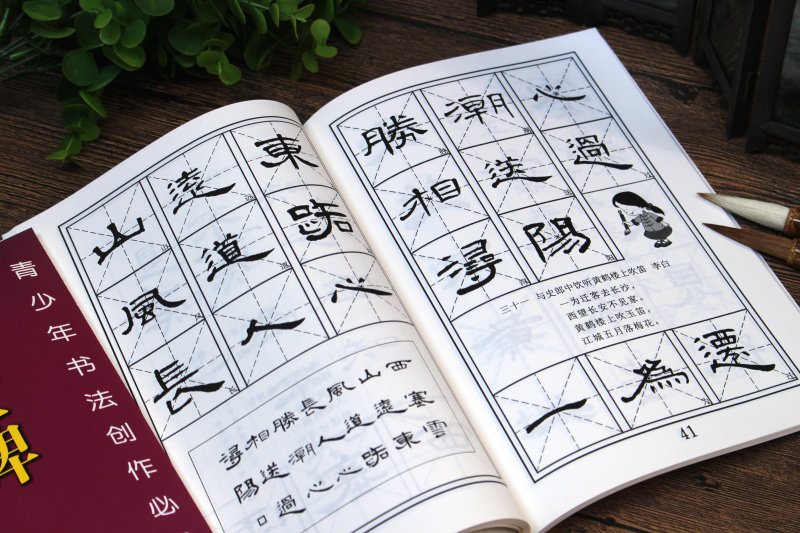 山遠東
風道路
長人心
西塞雲
山遠東
風道路
長人心
勝潮心
相送過
潯陽口
勝潮心
相送過
潯陽
三十一 与史郎中饮听黄鹤楼上吹笛 李白
一为迁客去长沙，
西望长安不见家。
黄鹤楼上吹玉笛，
江城五月落梅花。
一為遷
41
青少年书法创作必